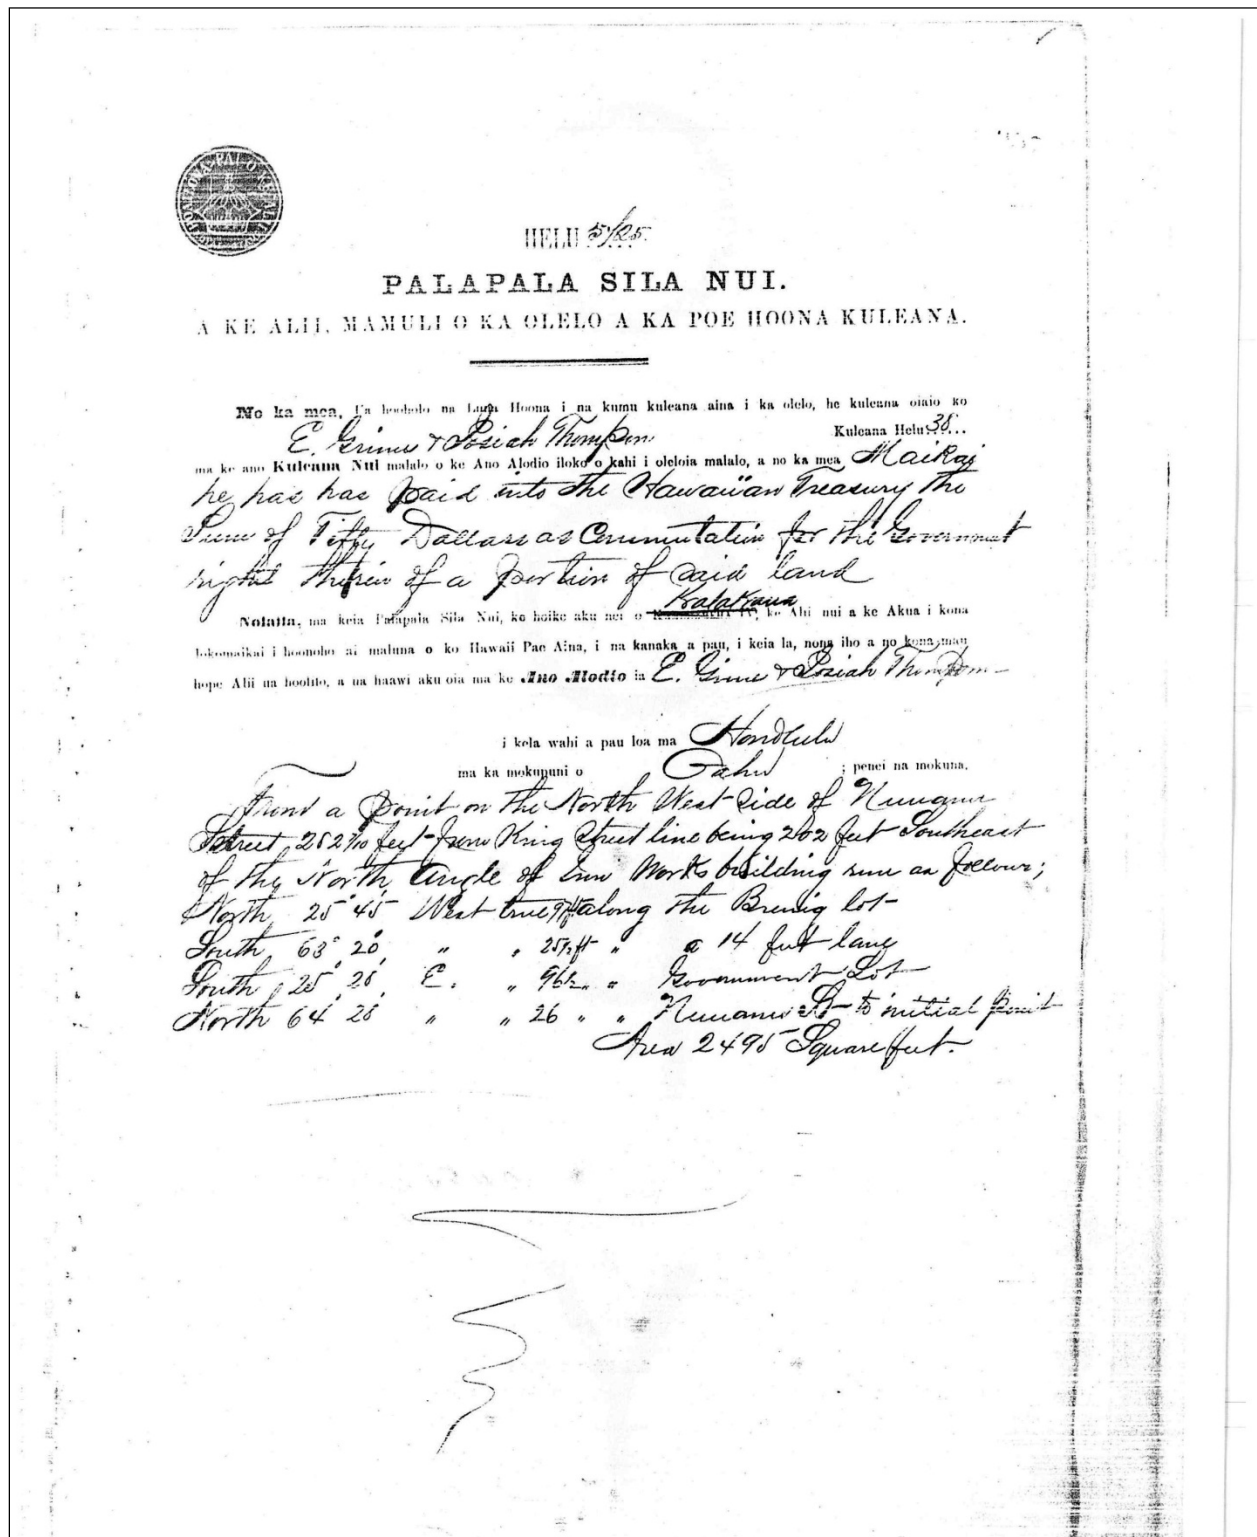 HELU 5125
PALAPALA SILA NUI.
A KE ALII, MAMULI O KA OLELO A KA POE HOONA KULEANA.
No ka mea, Ua hooholo na Luna Hoona i na kumu kuleana aina i ka olelo, he kuleana oiaio ko
E. Grime & Josiah Thompson Kuleana Helu 38...
ma ke ano Kuleana Nui malalo o ke Ano Alodio iloko o kahi i oleloia malalo, a no ka mea Maikai
he has has paid into the Hawaiian Treasury the
Sum of Fifty Dollars as Commutation for the Government
rights therein of a portion of said land
Kalakaua
Nolaila, ma keia Palapala Sila Nui, ke hoike aku nei o ke Alii nui a ke Akua i kona
lokomaikai i hoonoho ai maluna o ko Hawaii Pae Aina, i na kanaka a pau, i keia la, nona iho a no kona mau
hope Alii ua hoolilo, a ua haawi aku oia ma ke Ano Alodio ia E. Grime & Josiah Thompson
i kela wahi a pau loa ma Honolulu
ma ka mokupuni o Oahu ; penei na mokuna.
From a point on the North West side of Nuuanu
Street, 282 7/10 feet from King Street line being 202 feet Southeast
of the North Angle of Works building run as follows;
North 25° 45' West true 97 ft along the Brenig lot
South 63° 20' " " 25½ ft " a 14 feet lane
South 25° 20' E. " 96½ " " Government Lot
North 64° 20' " " 26 " " Nuuanu St to initial point
Area 2495 Square feet.